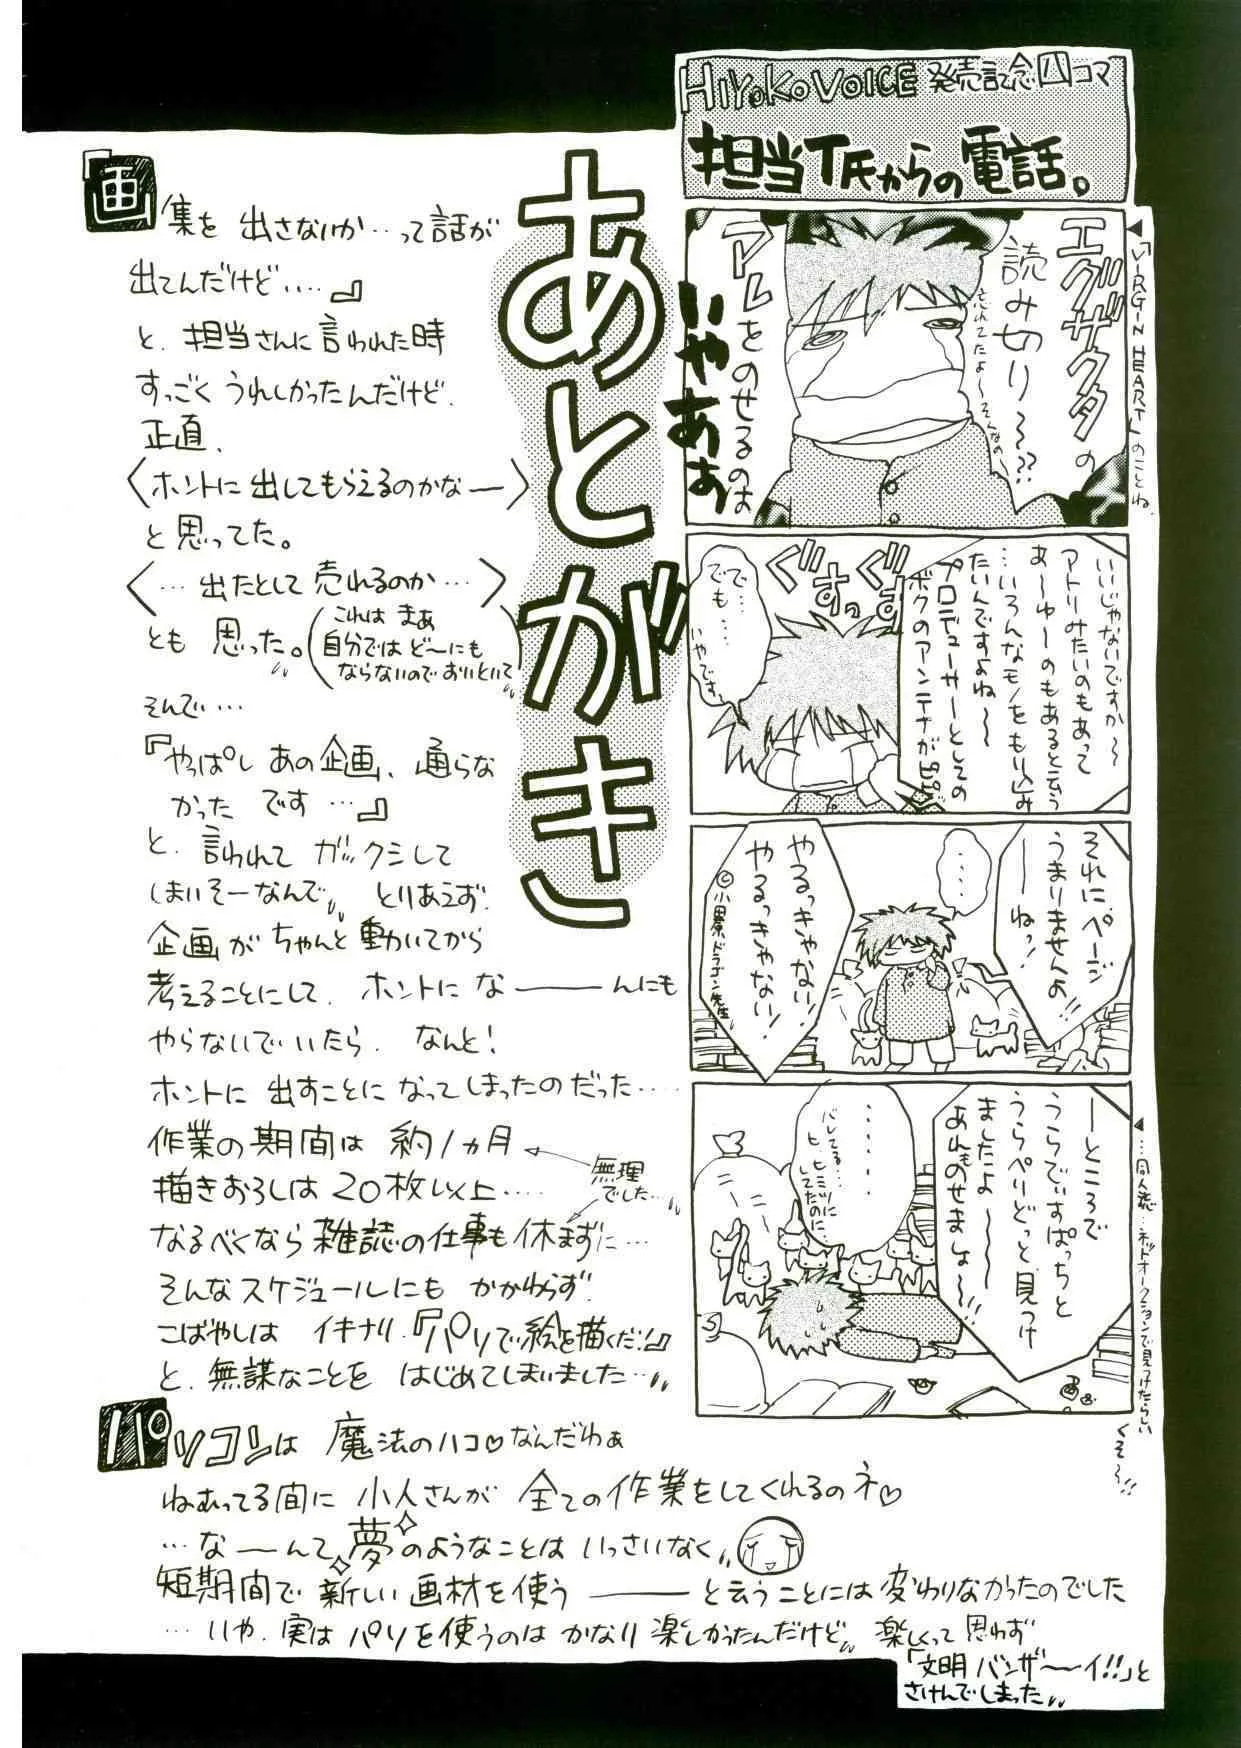 HIYOKO VOICE 発売記念四コマ
担当T氏からの電話。
◀「VIRGIN HEART」のことね。
エグザクタの
読み切り〜??
忘れてたよ〜そんなの
アレをのせるのは
いやあぁ
いいじゃないですか〜
アトリみたいのもあって
あ〜ゆーのもあると云う
…いろんなモノをもり込み
たいんですよね〜
プロデューサーとしての
ボクのアンテナがピピッ
ぐすっ
ぐす
でで…
でも…
いやです
それにページ
うまりませんよ
——ねっ!
・・・・
やるっきゃない!
やるっきゃない!
©小田原ドラゴン先生
—ところで
うらでぃすぱっちと
うらぺりどっと見つけ
ましたよ〜〜
あれものせましょ〜!!
・・・・・・
バレてる…
ヒ、ヒミツに
してたのに
◀…同人誌…ネットオークションで見つけたらしい
くそ〜!!
あとがき
「画集を 出さないか…って話が
出てんだけど‥‥』
と、担当さんに言われた時
すっごく うれしかったんだけど、
正直、
〈ホントに 出してもらえるのかなー〉
と思ってた。
〈…出たとして 売れるのか…〉
とも 思った。(これは まぁ
自分では ど〜にも
ならないので おいといて)
そんで…
『やっぱし あの企画、通らな
かった です…』
と、言われて ガックシして
しまいそーなんで とりあえず、
企画が ちゃんと 動いてから
考えることにして、ホントに な———んにも
やらないでいたら、なんと!
ホントに 出すことに なってしまったのだった‥‥
作業の期間は 約1ヵ月
描きおろしは 20枚以上‥‥
無理
でした…
なるべくなら 雑誌の仕事も 休まずに…
そんなスケジュールにも かかわらず、
こばやしは イキナリ、『パソで絵を描くだ!』
と、無謀なことを はじめてしまいました…
パソコンは 魔法のハコ♡なんだわぁ
ねむってる間に 小人さんが 全ての作業をしてくれるのネ♡
…な——んて 夢のようなことは いっさいなく
短期間で 新しい画材を使う ———と云うことには 変わりなかったのでした
…いや、実は パソを使うのは かなり 楽しかったんだけど 楽しくって 思わず
「文明 バンザ〜〜イ!!」と
さけんでしまった